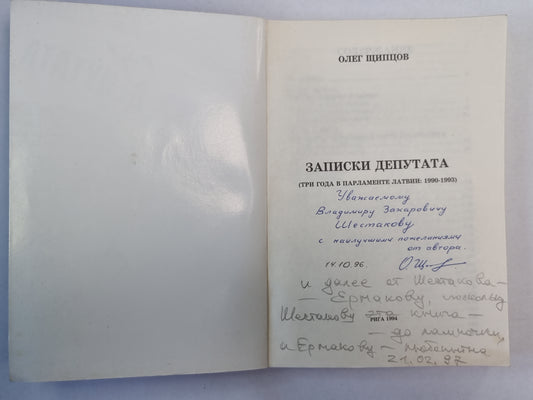 ОЛЕГ ЩИПЦОВ
ЗАПИСКИ ДЕПУТАТА
(ТРИ ГОДА В ПАРЛАМЕНТЕ ЛАТВИИ: 1990-1993)
Уважаемому
Владимиру Захаровичу
Шестакову
с наилучшими пожеланиями
от автора.
14.10.96.
и далее от Шестакова -
- Ермакову, поскольку
Шестакову эта книга -
РИГА 1994
- до лампочки,
и Ермакову - любопытна
21.02.97